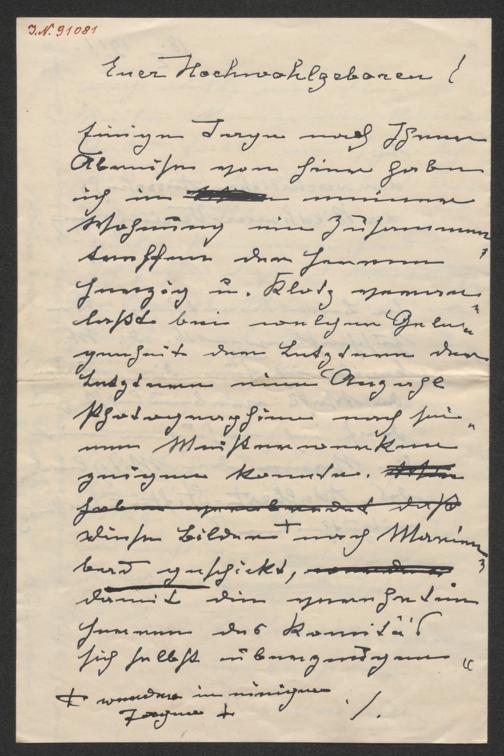 J.N. 91081
Euer Hochwohlgeboren!
Einige Tage nach Ihrer
Abreise von hier habe
ich in meiner
Wohnung ein Zusammen-
treffen der Herren
Herzig u. Klotz veran-
laßt bei welcher Gele-
genheit der Letztere
Letzteren eine Anzahl
Photographien nach sei-
nen Meisterwerken
zeigen konnte.
haben verabredet daß
diese Bilder + nach Marien-
bad geschickt, werden
damit die verehrten
Herren des Komités
sich selbst überzeugen
+ werden in einigen
Tagen +
./.